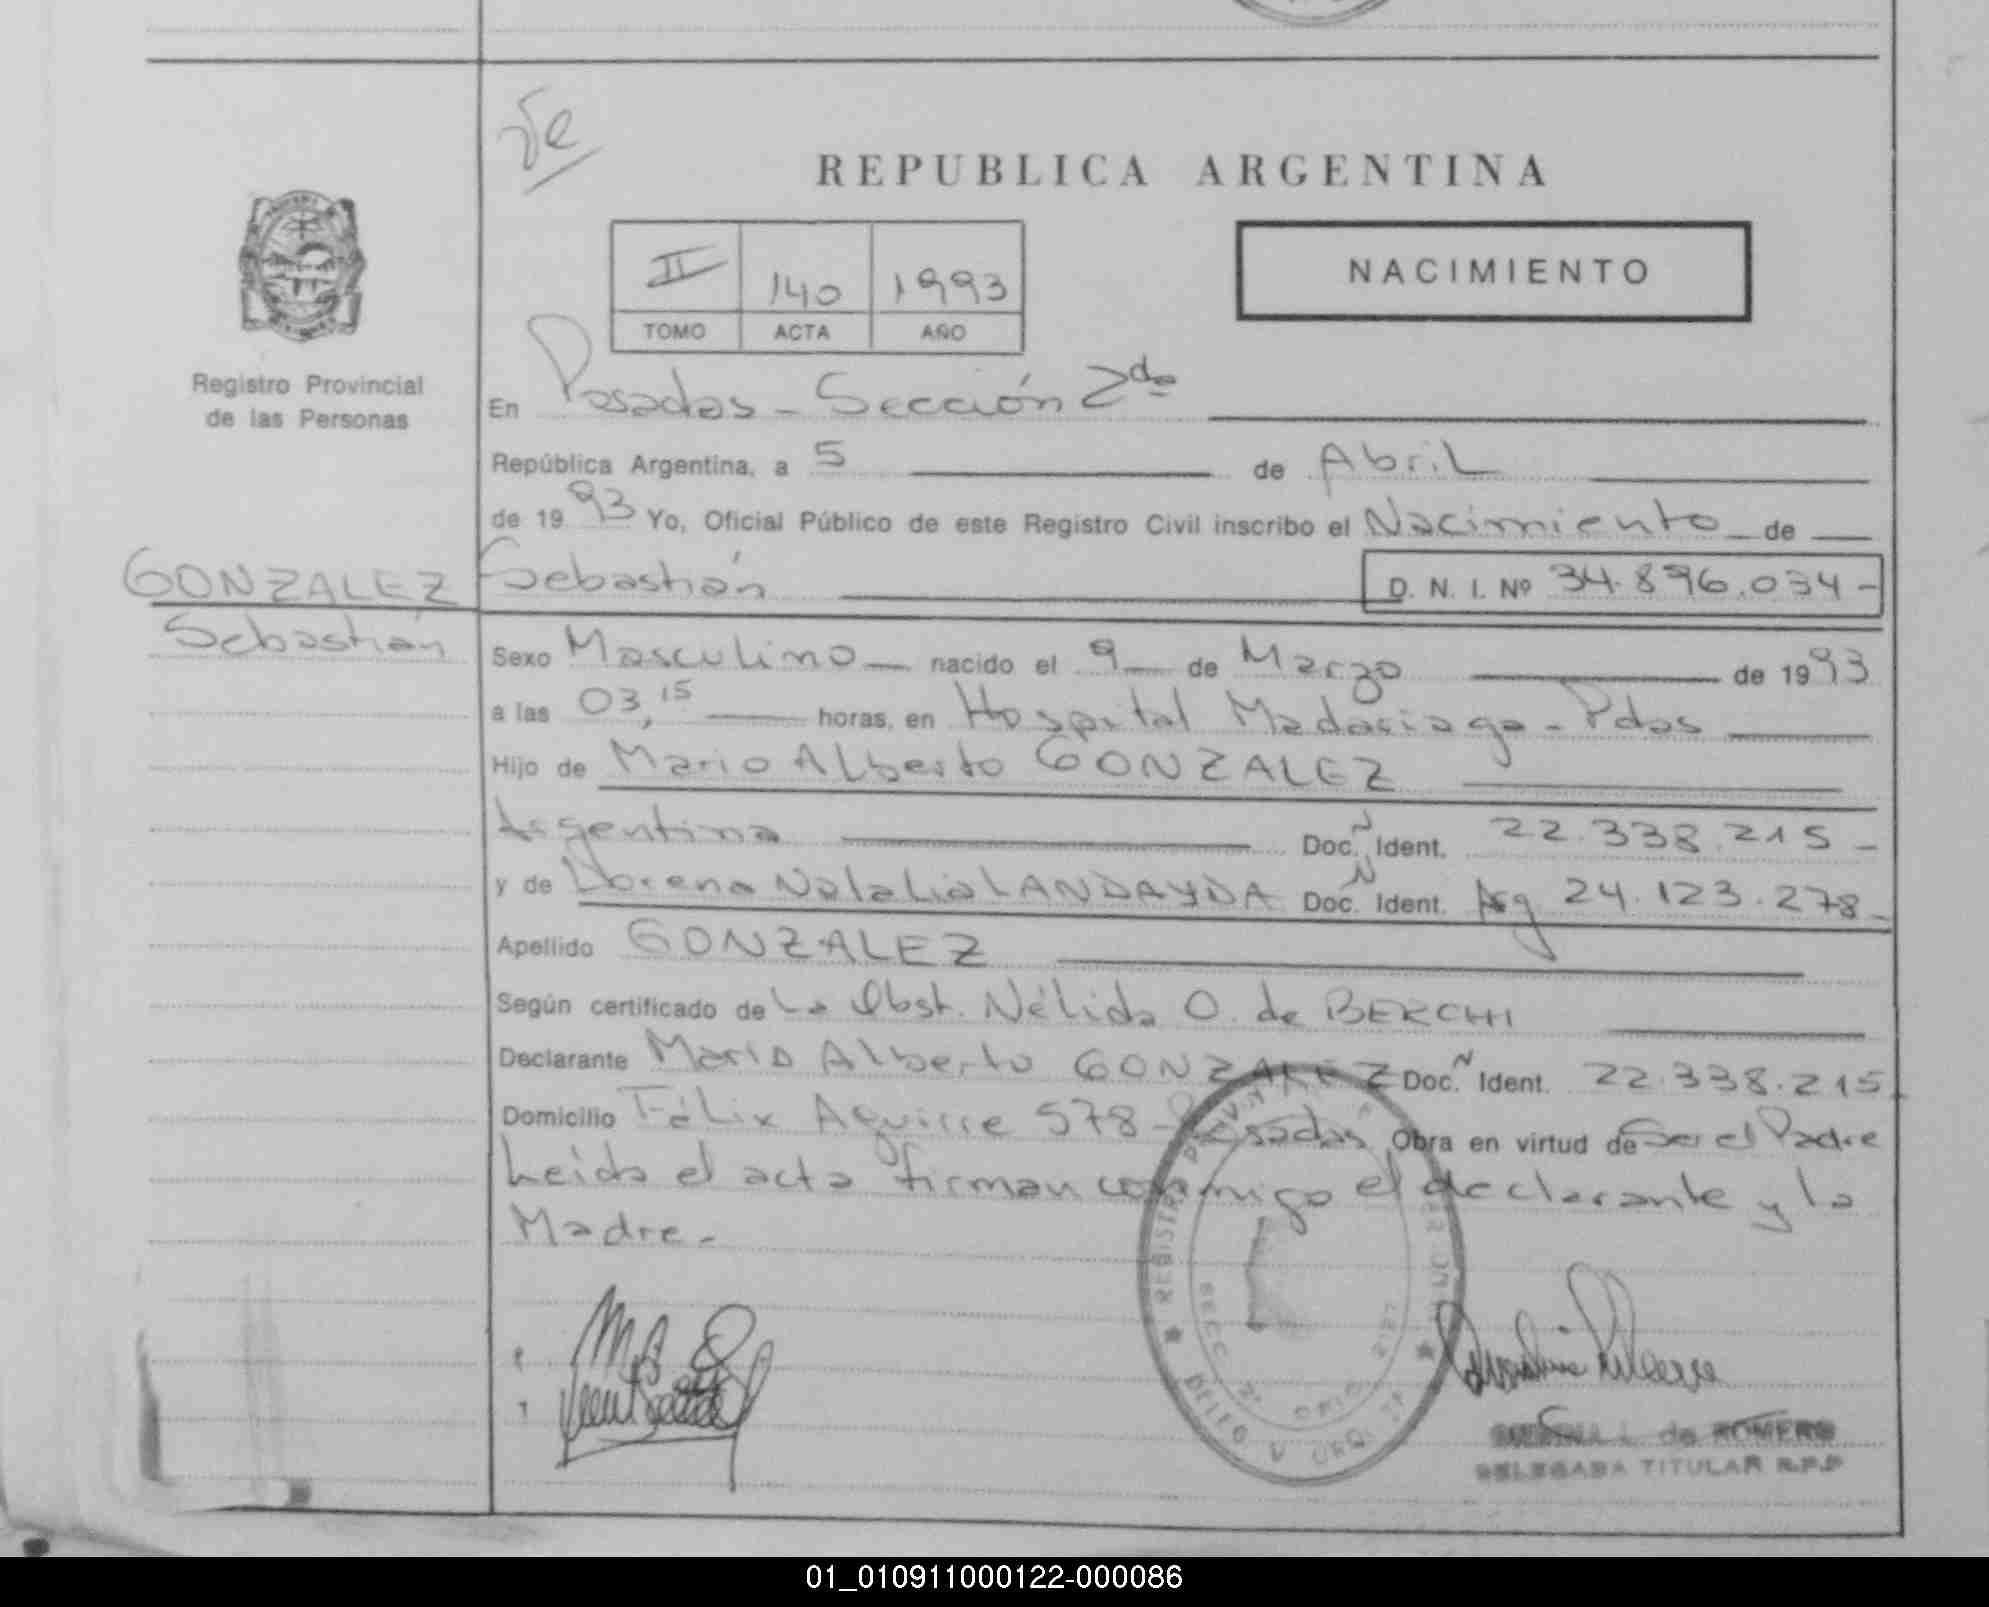 Ve
REPUBLICA ARGENTINA
II 140 1993
TOMO ACTA AÑO
NACIMIENTO
Registro Provincial
de las Personas
En Posadas - Sección 2da
República Argentina, a 5 de Abril
de 1993 Yo, Oficial Público de este Registro Civil inscribo el Nacimiento de
GONZALEZ
Sebastián
Sebastián D. N. I. Nº 34.896.034-
Sexo Masculino nacido el 9 de Marzo de 1993
a las 03,15 horas, en Hospital Madariaga - Pdas
Hijo de Mario Alberto GONZALEZ
Argentina Doc. N Ident. 22.338.215-
y de Lorena Natalia LANDAYDA Doc. N Ident. Arg 24.123.278-
Apellido GONZALEZ
Según certificado de La Obst. Nélida O. de BERCHI
Declarante Mario Alberto GONZALEZ Doc. N Ident. 22.338.215
Domicilio Félix Aguirre 578 - Posadas Obra en virtud de Ser el Padre
Leida el acta firman conmigo el declarante y la
Madre-
L. de ROMERO
DELEGADA TITULAR R.P.P
01_010911000122-000086